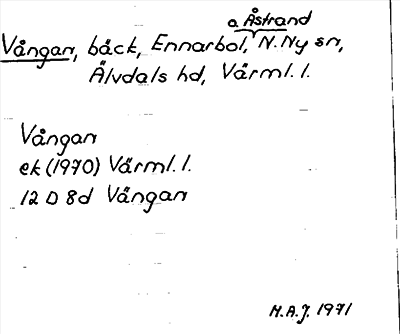 a. Åstrand
Vångan, bäck, Ennarbol, N.Ny sn,
Älvdals hd, Värml. l.
Vångan
ek (1970) Värml. l.
12 D 8d Vångan
M.A.J. 1971